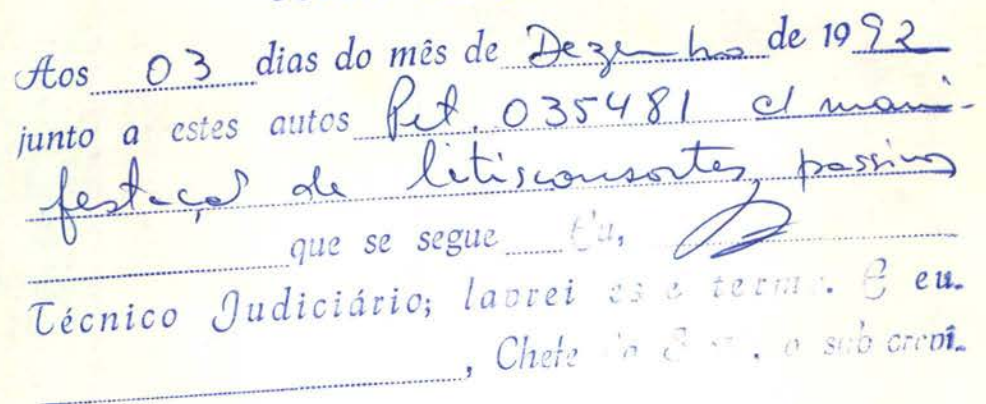 Aos 03 dias do mês de Dezembro de 1992
junto a estes autos Pet. 035481 c/ mani-
festação de litisconsortes passivos
que se segue Eu,
Técnico Judiciário; lavrei este termo. E eu.
, Chefe o subcrevi.